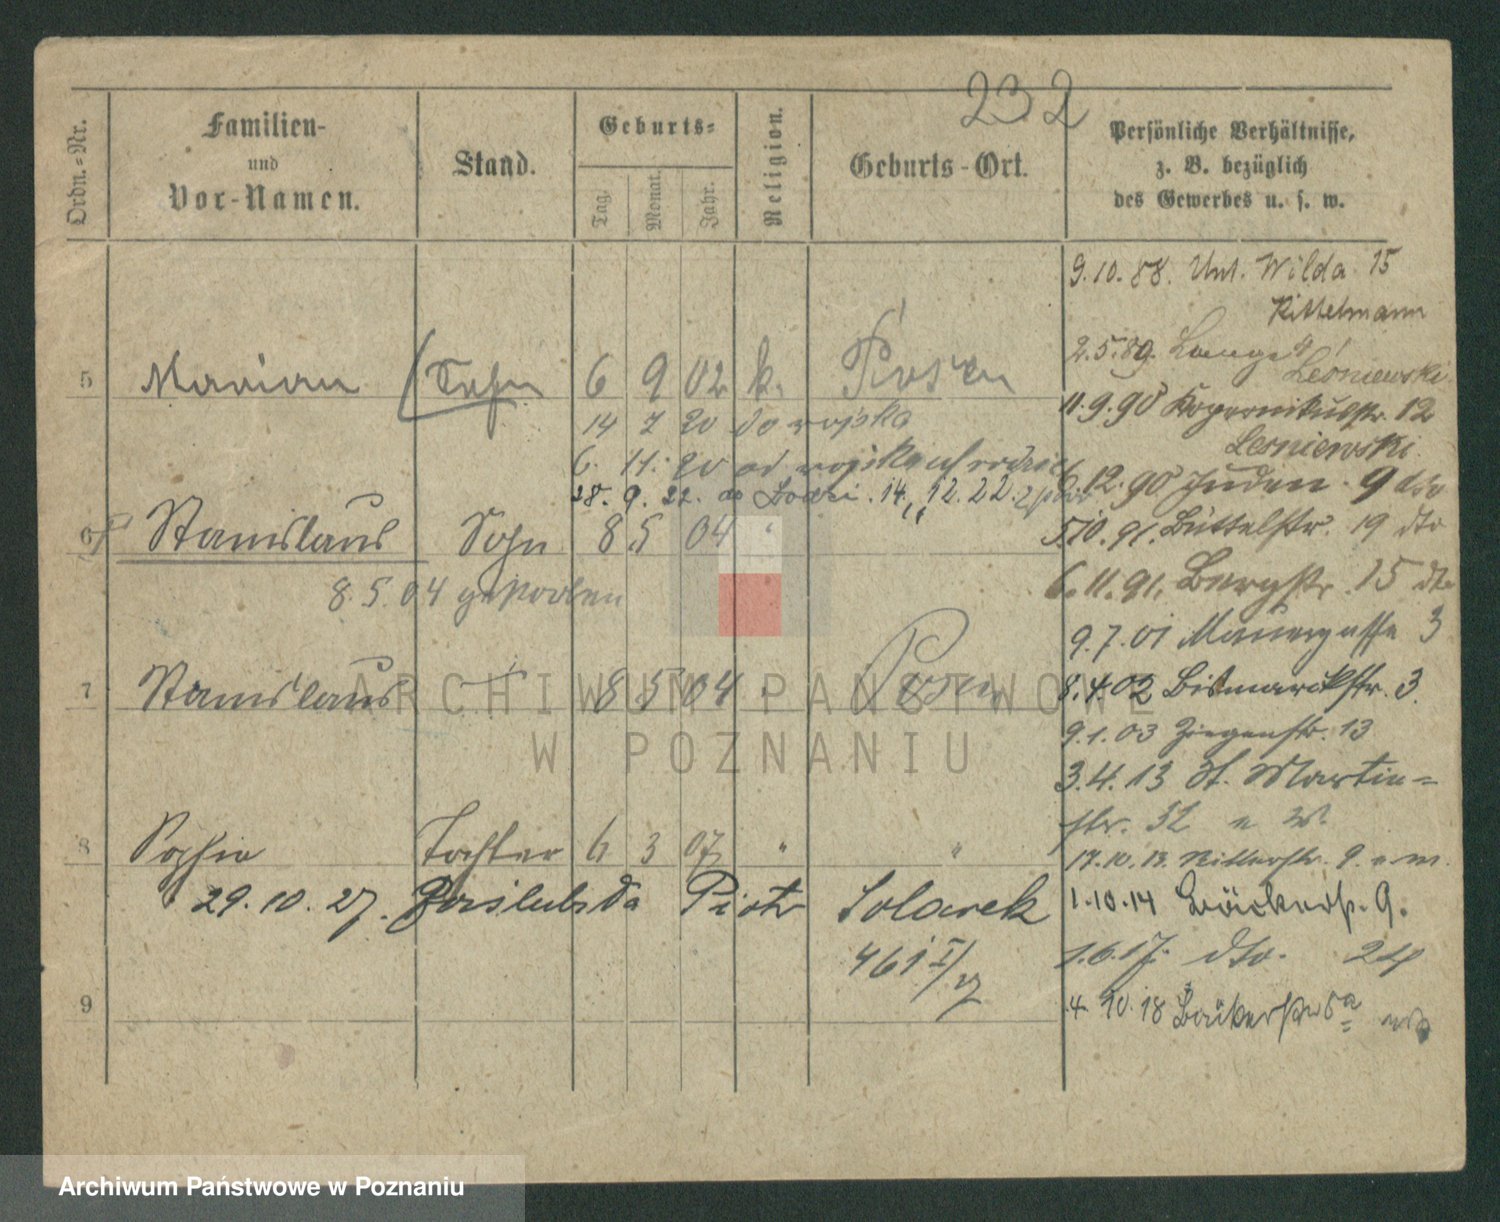 232
Ordn.-Nr.
Familien-
und
Vor-Namen.
Stand.
Geburts-
Tag.
Monat.
Jahr.
Religion.
Geburts-Ort.
Persönliche Verhältnisse,
z. B. bezüglich
des Gewerbes u. s. w.
5 Marian Sohn 6 9 02 k. Posen
14 7 20 do wojska
6. 11. 20 od wojska
28. 9. 22. do Łodzi. 14. 12. 22.
6 Stanislaus Sohn 8 5 04 "
8.5.04 gestorben
7 Stanislaus 8 5 04 Posen
8 Sophie Tochter 6 3 07 " "
29.10.27. Piotr Solarek
461 I/27
9
9.10.88. Unt. Wilda 15
Kittelmann
2.5.89. Lange 4
Leśniewski.
11.9.90 Kopernikusstr. 12
Lesniewski.
6.12.90 Juden. 9 dto
5.10.91. Büttelstr. 19 dto
6.11.91. Bergstr. 15 dto
9.7.01 Mauergasse 3
8.4.02 Bismarckstr. 3.
9.1.03 Ziegenstr. 13
3.4.13 St. Martin-
str. 32
17.10.13. Ritterstr. 9.
1.10.14 Bäckerstr. 9.
1.6.17. dto. 24
4.10.18 Bäckerstr.
ARCHIWUM PAŃSTWOWE
W POZNANIU
Archiwum Państwowe w Poznaniu